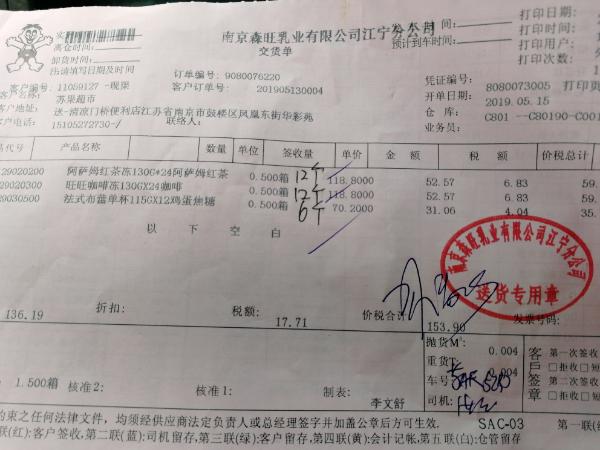 南京森旺乳业有限公司江宁分公司
交货单
离仓时间:
卸货时间:
请填写日期及时间
预计到车时间:
打印日期:
打印时间:
打印用户:
打印次数:
客户编号: 11059127 -现渠
订单编号: 9080076220
凭证编号: 8080073005
打印页
苏果超市
客户订单号: 201905130004
开单日期: 2019.05.15
客户地址: 送-清凉门桥便利店江苏省南京市鼓楼区凤凰东街华彩苑
仓 库: C801 --C80190-C001
客户电话: 15105272730-/
联络人:
业务员:
品代号 产品名称 数量 单位 签收量 单价 金 额 税 额 价税总计
29020200 阿萨姆红茶冻130G*24阿萨姆红茶 0.500箱 12个 118.8000 52.57 6.83 59.
29020300 旺旺咖啡冻130GX24咖啡 0.500箱 12个 118.8000 52.57 6.83 59.
29030500 法式布蕾单杯115GX12鸡蛋焦糖 0.500箱 6个 70.2000 31.06 4.04 35.
以 下 空 白
南京森旺乳业有限公司江宁分公司
送货专用章
136.19 折扣: 税额: 17.71 价税合计: 153.90 发票号码:
抛货M³: 0.004
重货T: 0.004
车号
司机:
客户签章
第一次签收
拒收 短
第二次签收
拒收 短
1.500箱 核准2: 核准1: 制表: 李文舒
约束之任何法律文件，均须经供应商法定负责人或总经理签字并加盖公章后方可生效.
SAC-03
第一联(
联(红):客户签收,第二联(蓝):司机留存,第三联(绿):客户留存,第四联(黄):会计记帐,第五联(白):仓管留存